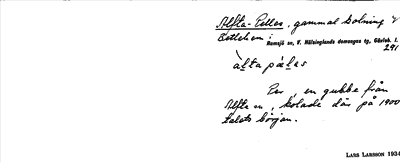 Alfta-Pelles, gammal kolning v
Betlehem:
Ramsjö sn, V. Hälsinglands domsagas tg, Gävleb. l.
291
àlta pælas
Per, en gubbe från
Alfta sn, kolade där på 1900
talets början.
LARS LARSSON 1934